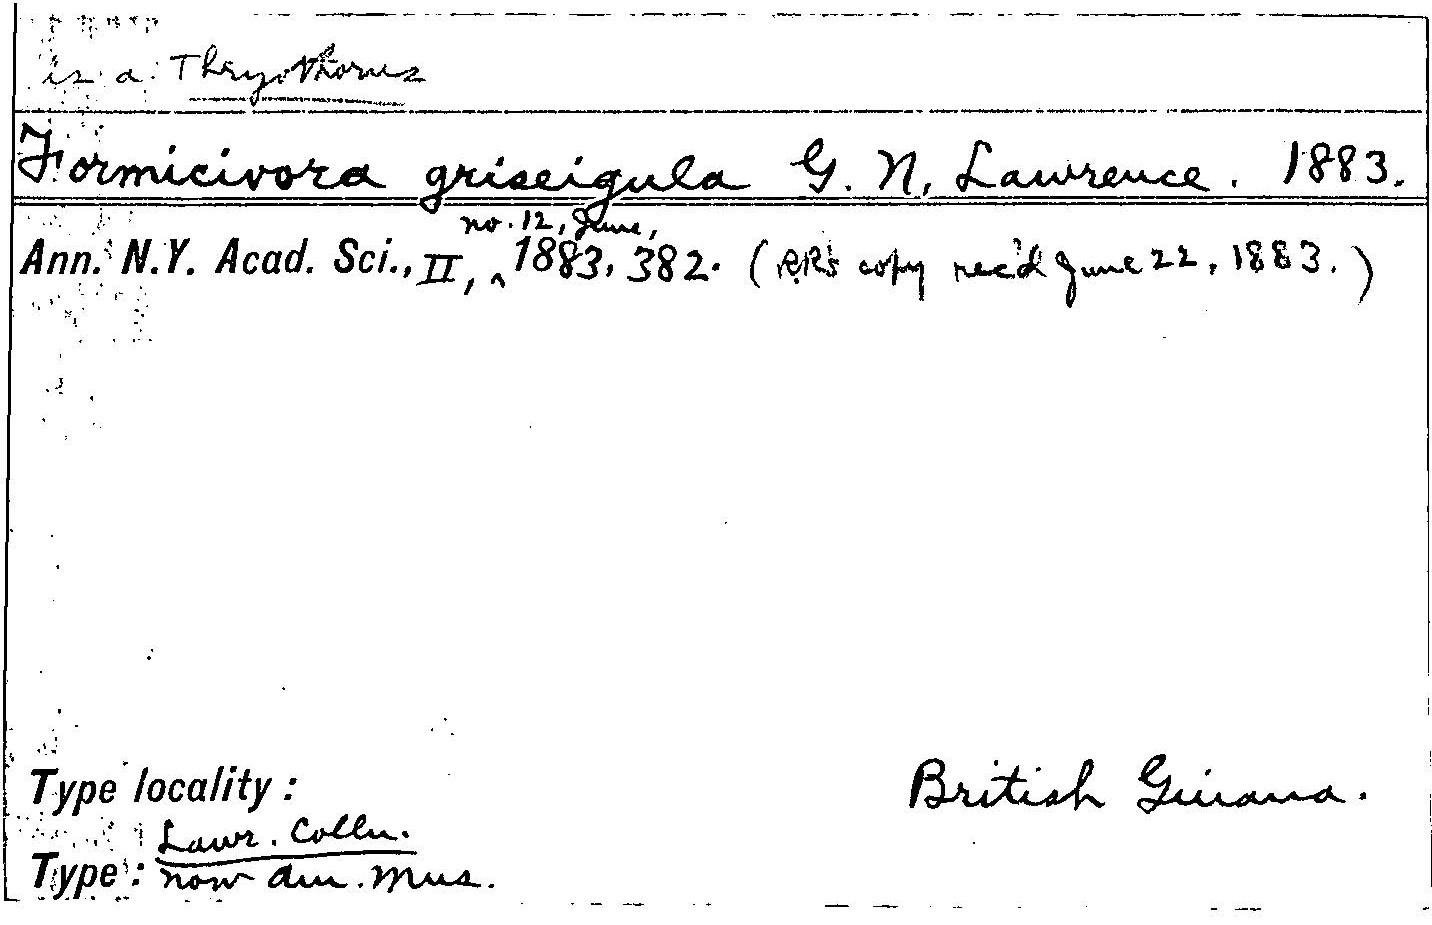 is a Thryothorus
Formicivora griseigula G. N. Lawrence. 1883.
no. 12, June,
Ann. N.Y. Acad. Sci., II, ^ 1883, 382. (RR's copy rec'd June 22, 1883.)
Type locality: British Guiana.
Lawr. Colln.
Type: now Am. Mus.